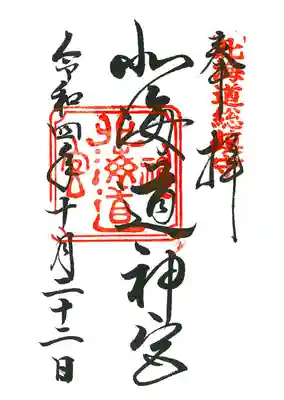 奉拝
北海道総鎮守
北海道神宮
令和四年十月二十二日